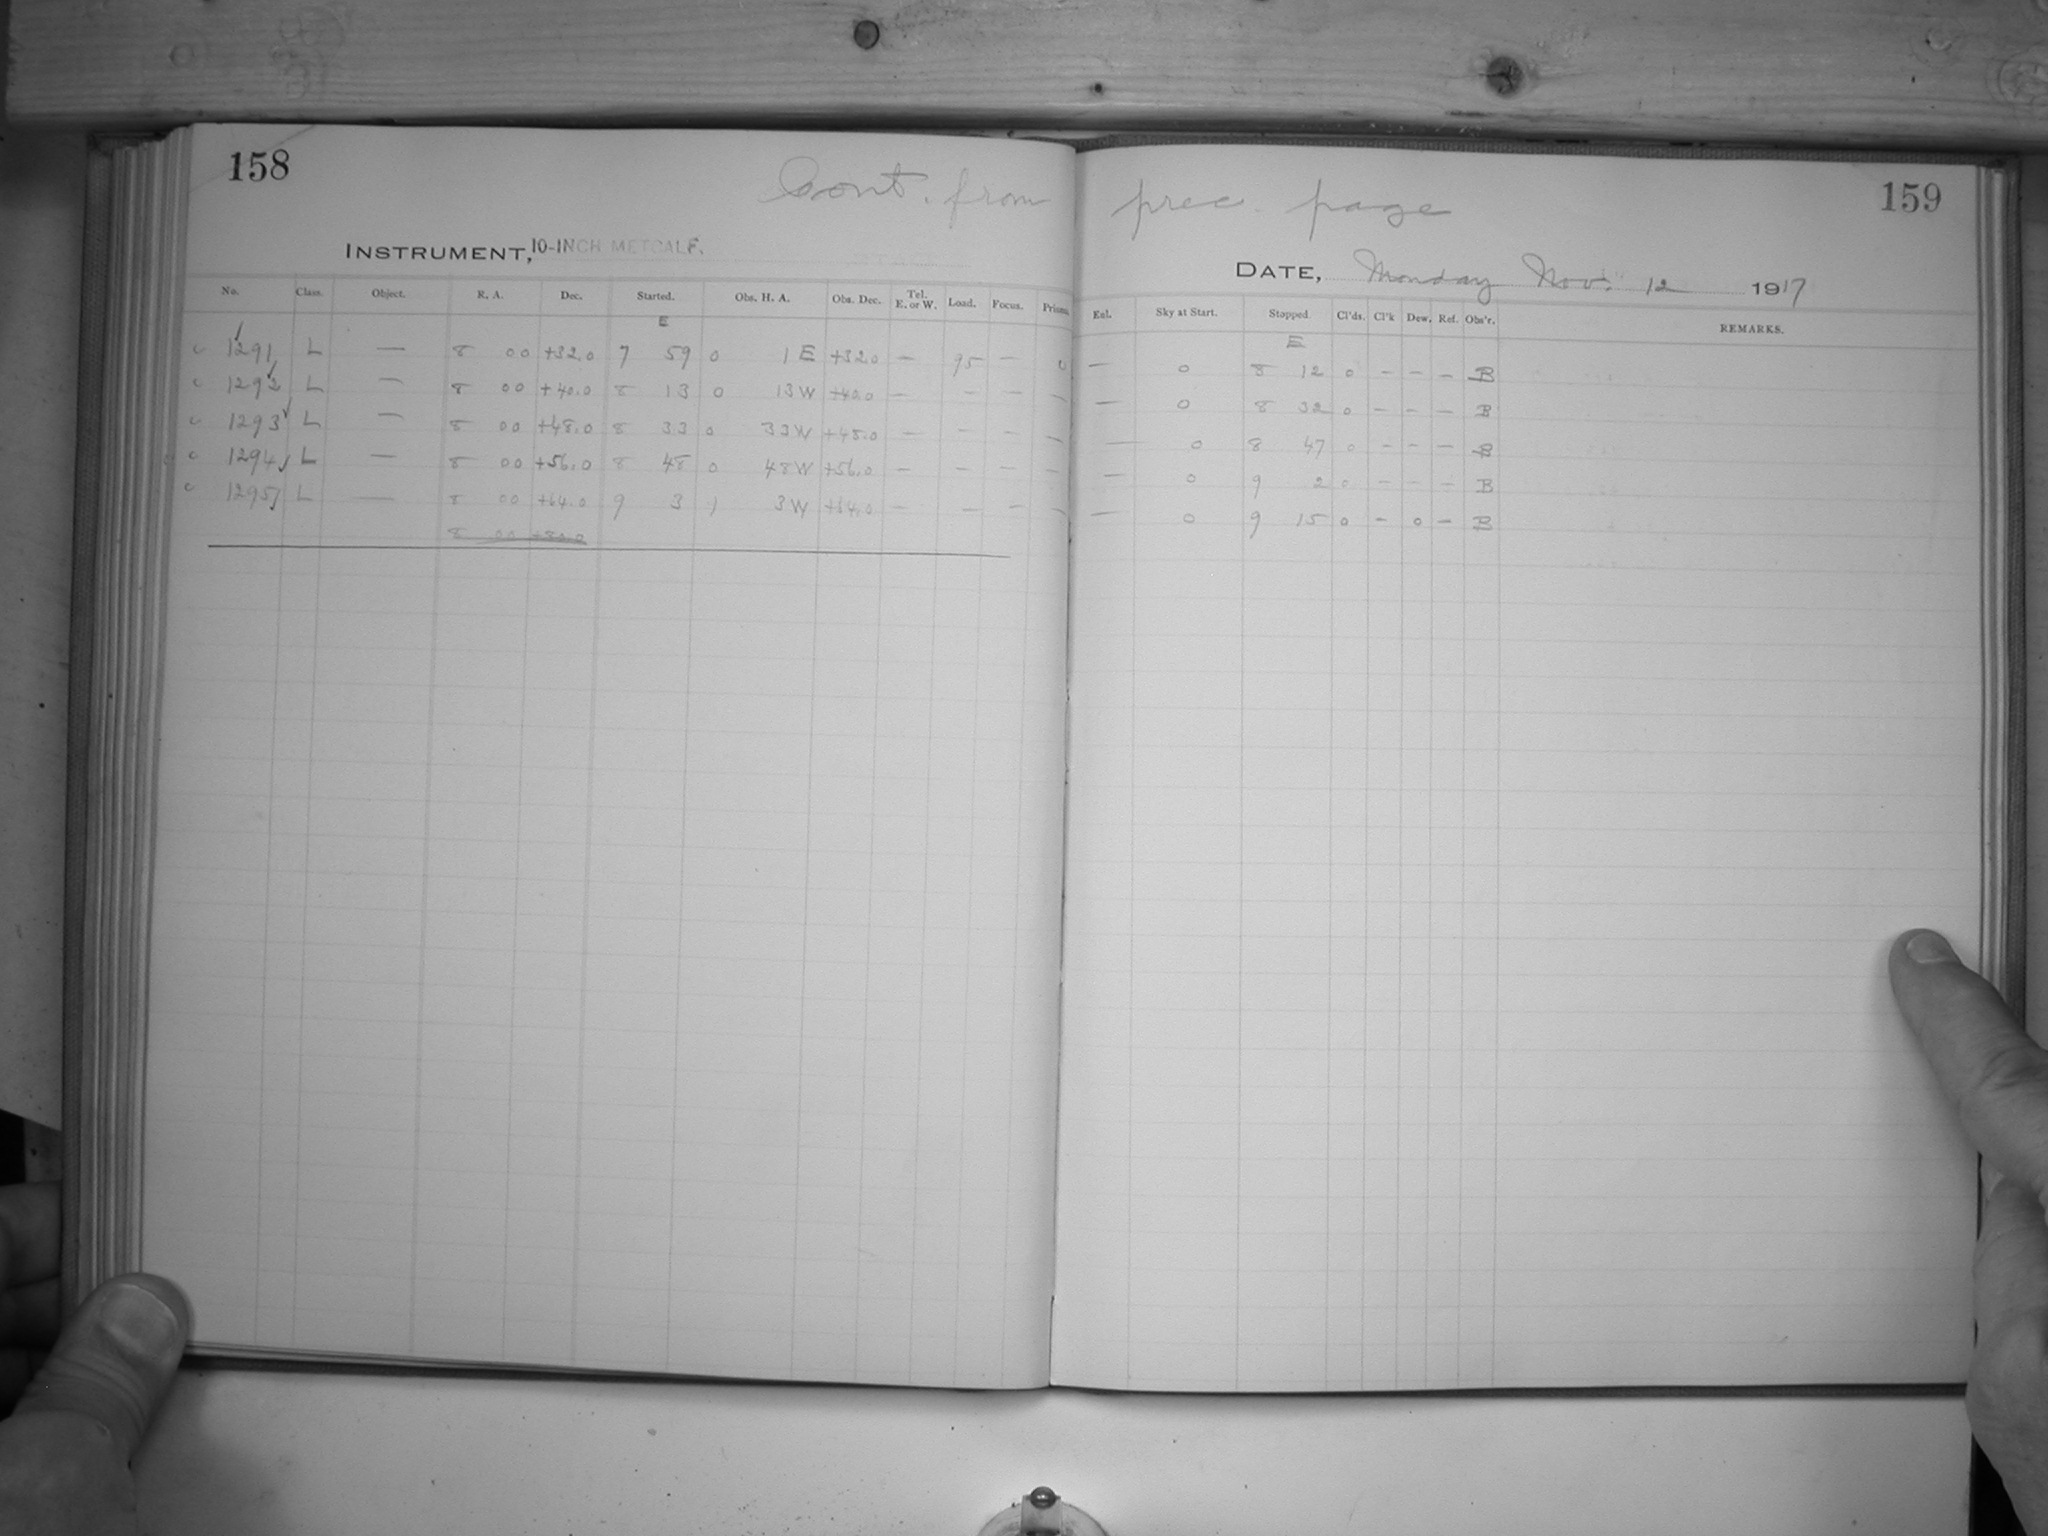 158
Cont. from prec. page
159
INSTRUMENT, 10-INCH METCALF.
DATE, Monday Nov. 12 1917
No. Class. Object. R. A. Dec. Started. Obs. H. A. Obs. Dec. Tel. E. or W. Load. Focus. Prisms. Ext. Sky at Start. Stopped. Cl'ds. Cl'k Dew. Ref. Obs'r. REMARKS.
E E
c 1291 L — 8 00 +32.0 7 59 0 1 E +32.0 — 95 — 0 — 0 8 12 0 - - - B
c 1292 L — 8 00 +40.0 8 13 0 13 W +40.0 — — — — — 0 8 32 0 - - - B
c 1293 L — 8 00 +48.0 8 33 0 33 W +48.0 — — — — — 0 8 47 0 - - - B
c 1294 L — 8 00 +56.0 8 48 0 48 W +56.0 — — — — — 0 9 2 0 - - - B
c 1295 L — 8 00 +64.0 9 3 1 3 W +64.0 — — — — — 0 9 15 0 - 0 - B
8 00